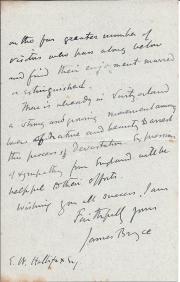 on the far greater number of
visitors who pass along below
and find their enjoyment marred
or extinguished.
There is already in Switzerland
a strong and growing movement among
lovers of nature and beauty to arrest
this process of Devastation. Expressions
of sympathy from England will be
helpful to their efforts.
Wishing you all success, I am
Faithfully yours
James Bryce
E. W. Hallifax Esq.